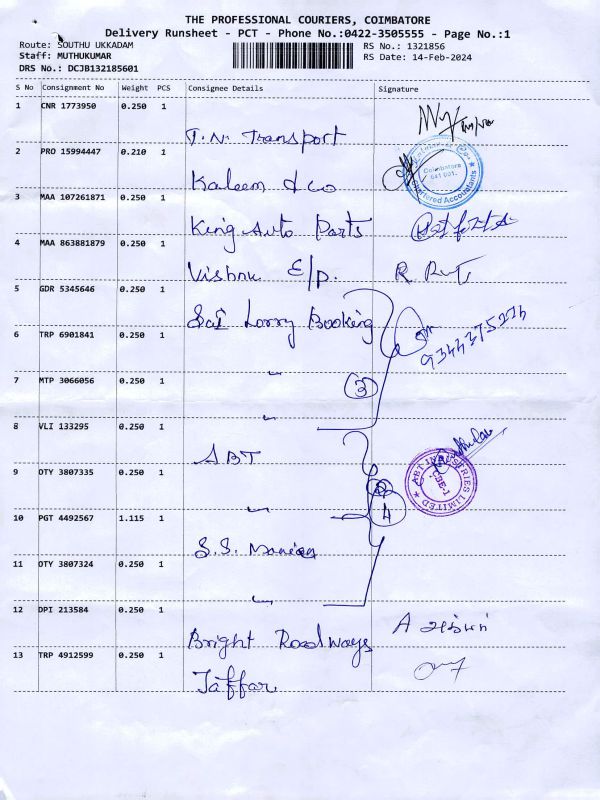 THE PROFESSIONAL COURIERS, COIMBATORE
Delivery Runsheet - PCT - Phone No.:0422-3505555 - Page No.:1
Route: SOUTHU UKKADAM
RS No.: 1321856
Staff: MUTHUKUMAR
RS Date: 14-Feb-2024
DRS No.: DCJB132185601
S No Consignment No Weight PCS Consignee Details Signature
1 CNR 1773950 0.250 1
T.N. Transport
2 PRO 15994447 0.210 1
Coimbatore
641 001.
Chartered Accountants
Kaleem & co
3 MAA 107261871 0.250 1
King Auto Parts
4 MAA 863881879 0.250 1
Vishnu E/p.
5 GDR 5345646 0.250 1
Sai Lorry Booking
9344375274
6 TRP 6901841 0.250 1
"
7 MTP 3066056 0.250 1
3
"
8 VLI 133295 0.250 1
ABT
ABT INDUSTRIES LIMITED
CBE-1
9 OTY 3807335 0.250 1
"
4
10 PGT 4492567 1.115 1
S.S. Manian
11 OTY 3807324 0.250 1
"
12 DPI 213584 0.250 1
Bright Roadways
13 TRP 4912599 0.250 1
Jaffar